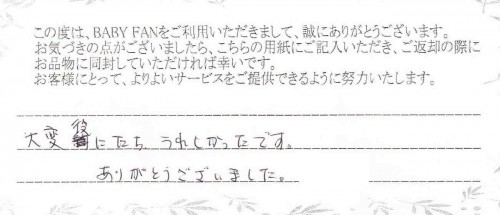 この度は、BABY FANをご利用いただきまして、誠にありがとうございます。
お気づきの点がございましたら、こちらの用紙にご記入いただき、ご返却の際に
お品物に同封していただければ幸いです。
お客様にとって、よりよいサービスをご提供できるように努力いたします。
大変役にたち、うれしかったです。
ありがとうございました。